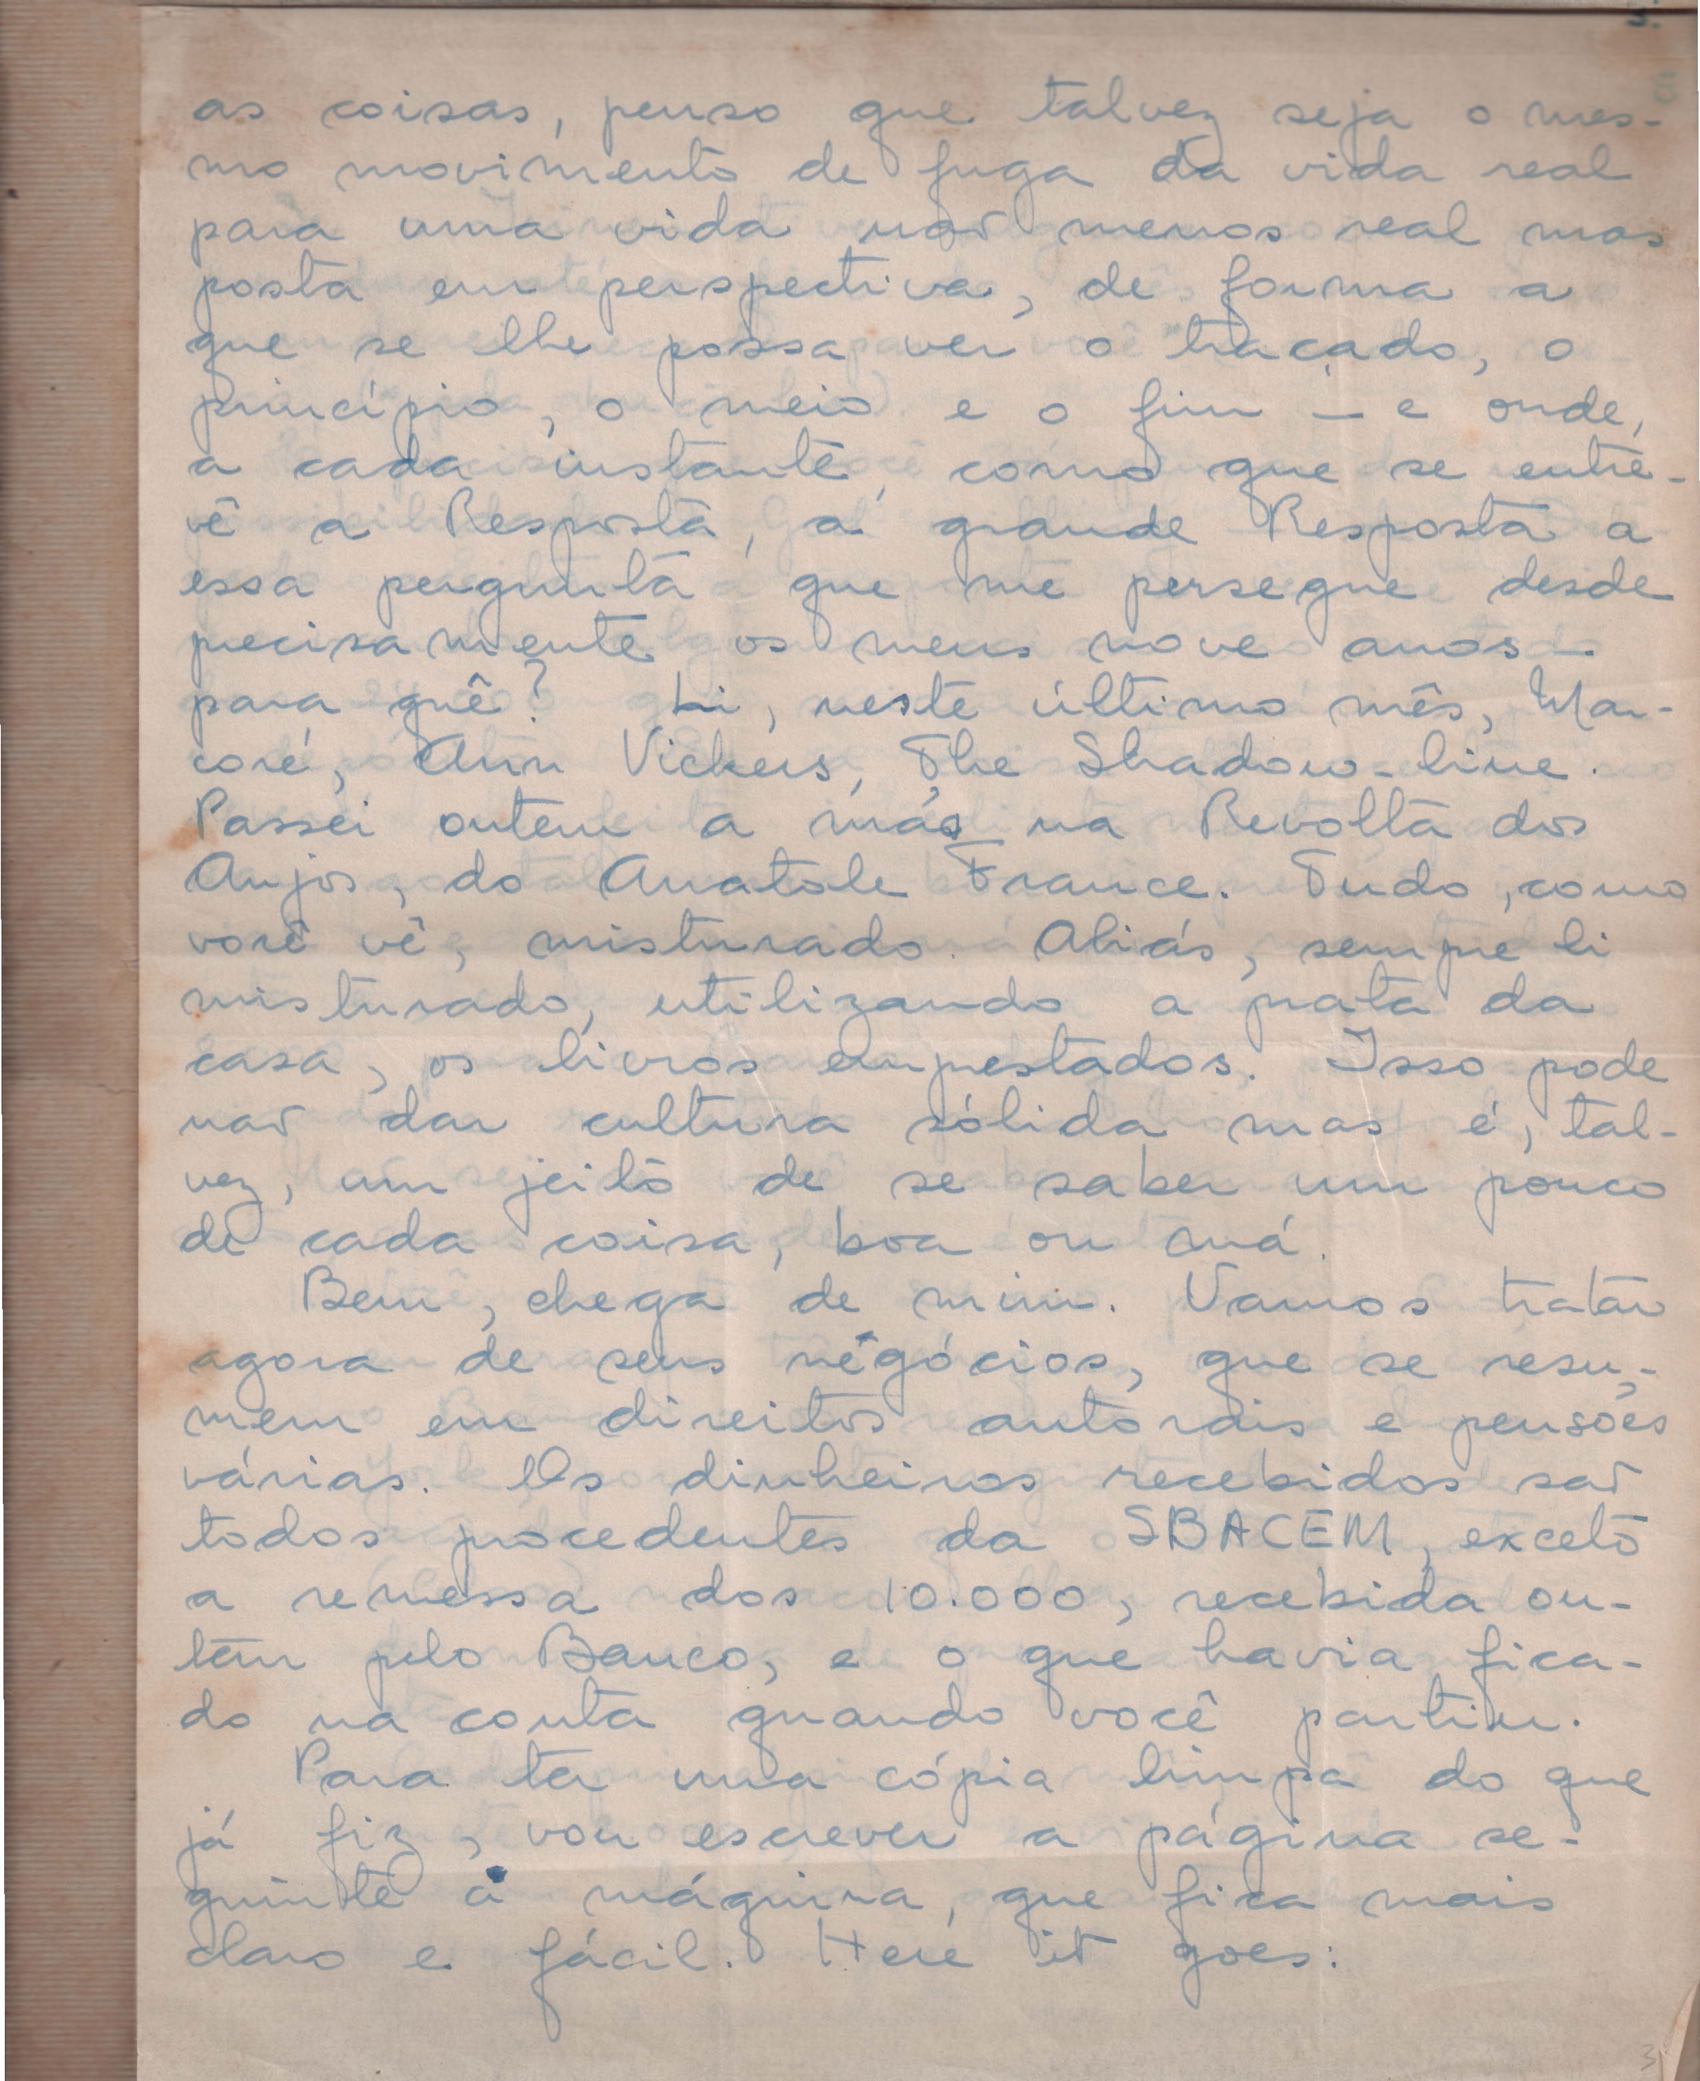 as coisas, penso que talvez seja o mes-
mo movimento de fuga da vida real
para uma vida não menos real mas
posta em perspectiva, de forma a
que se lhe possa ver o traçado, o
princípio, o meio e o fim — e onde,
a cada instante, como que se entre-
vê a Resposta, a grande Resposta a
essa pergunta que me persegue desde
precisamente os meus nove anos —
para quê? Li, neste último mês, Mar-
coré, Ann Vickers, The Shadow-line.
Passei ontem a mão na Revolta dos
Anjos, do Anatole France. Tudo, como
você vê, misturado. Aliás, sempre li
misturado, utilizando a prata da
casa, os livros emprestados. Isso pode
não dar cultura sólida mas é, tal-
vez, um jeito de se saber um pouco
de cada coisa, boa ou má.
Bem, chega de mim. Vamos tratar
agora de seus negócios, que se resu-
mem em direitos autorais e pensões
várias. Os dinheiros recebidos são
todos procedentes da SBACEM, exceto
a remessa dos 10.000, recebida on-
tem pelo Banco, e o que havia fica-
do na conta quando você partiu.
Para ter uma cópia limpa do que
já fiz, vou escrever a página se-
guinte à máquina, que fica mais
claro e fácil. Here it goes:
3